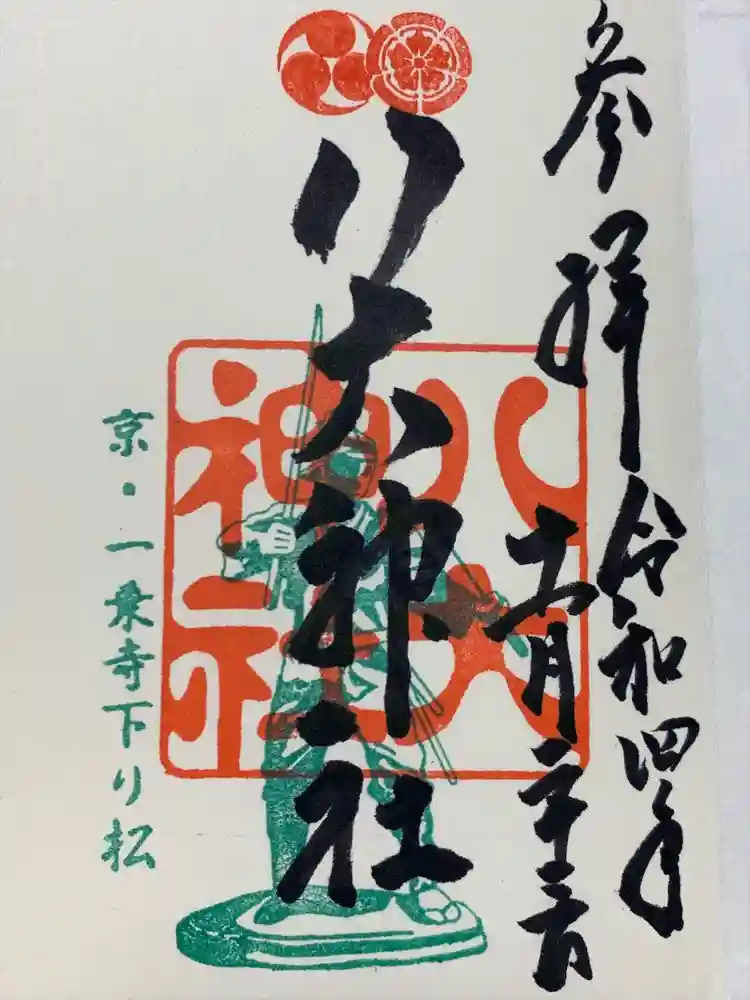 参拝 令和四年
十一月二十三日
八大神社
八大
神社
京・一乗寺下り松